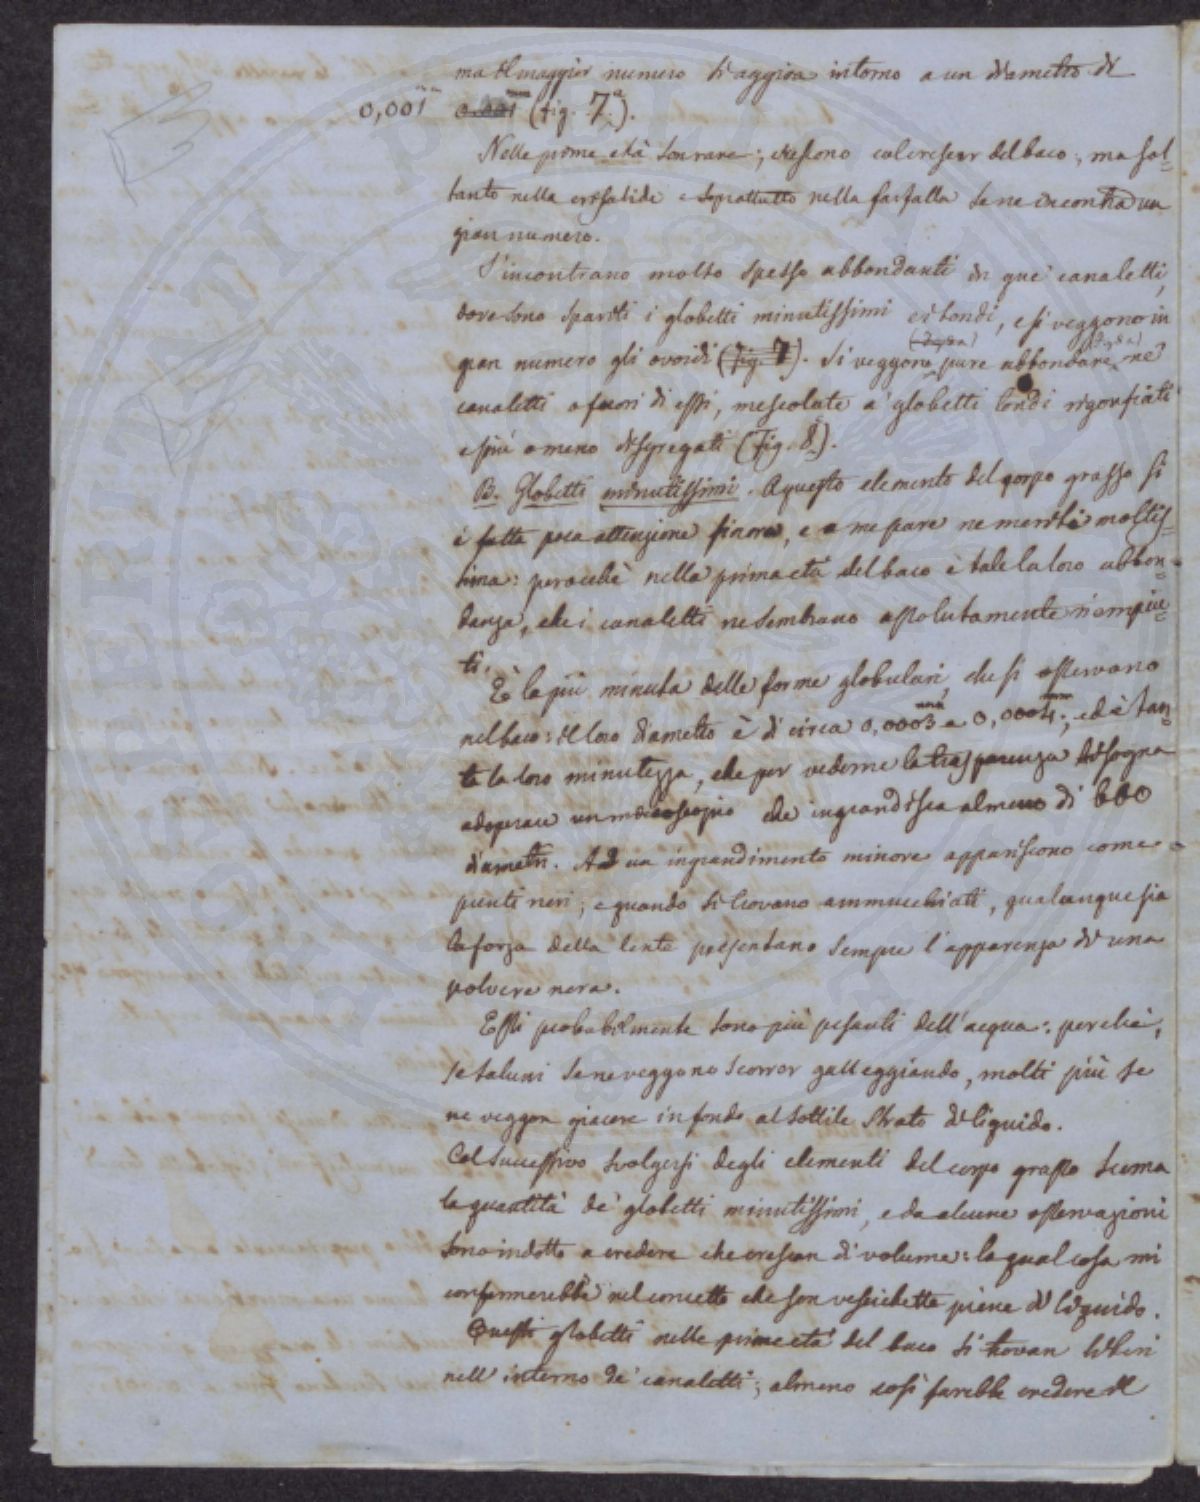 ma il maggior numero si aggira intorno a un diametro di
0,001mm 0.001mm (fig. 7.a).
Nelle prime età son rare; crescono col crescer del baco; ma sol-
tanto nella crisalide e soprattutto nella farfalla se ne incontra un
gran numero.
S'incontrano molto spesso abbondanti in que' canaletti,
dove sono spariti i globetti minutissimi ritondi, e si veggono in
gran numero gli ovoidi (fig. 7). Si veggono pure abbondare ne'
canaletti o fuori di essi, mescolate a' globetti tondi rigonfiati
e più o meno disgregati (fig. 8.).
B. Globetti minutissimi. A questo elemento del corpo grasso si
è fatta poca attenzione finora, e a me pare ne meriti moltis-
sima: perocchè nella prima età del baco è tale la loro abbon-
danza, che i canaletti ne sembrano assolutamente riempiu-
ti.
È la più minuta delle forme globulari, che si osservano
nel baco: il loro diametro è di circa 0,0003mm a 0,0004mm; ed è tan-
ta la loro minutezza, che per vederne la trasparenza bisogna
adoperare un microscopio che ingrandisca almeno di 660
diametri. Ad un ingrandimento minore appariscono come
punti neri; e quando si trovano ammucchiati, qualunque sia
la forza della lente presentano sempre l'apparenza di una
polvere nera.
Essi probabilmente sono più pesanti dell'acqua: perchè,
se taluni se ne veggono scorrer galleggiando, molti più se
ne veggon giacere in fondo al sottile strato di liquido.
Col successivo svolgersi degli elementi del corpo grasso scema
la quantità de' globetti minutissimi, e da alcune osservazioni
sono indotto a credere che crescan di volume: la qual cosa mi
confermerebbe nel concetto che son vescichette piene di liquido.
Questi globetti nelle prime età del baco si trovan liberi
nell'interno de' canaletti; almeno così farebbe credere il